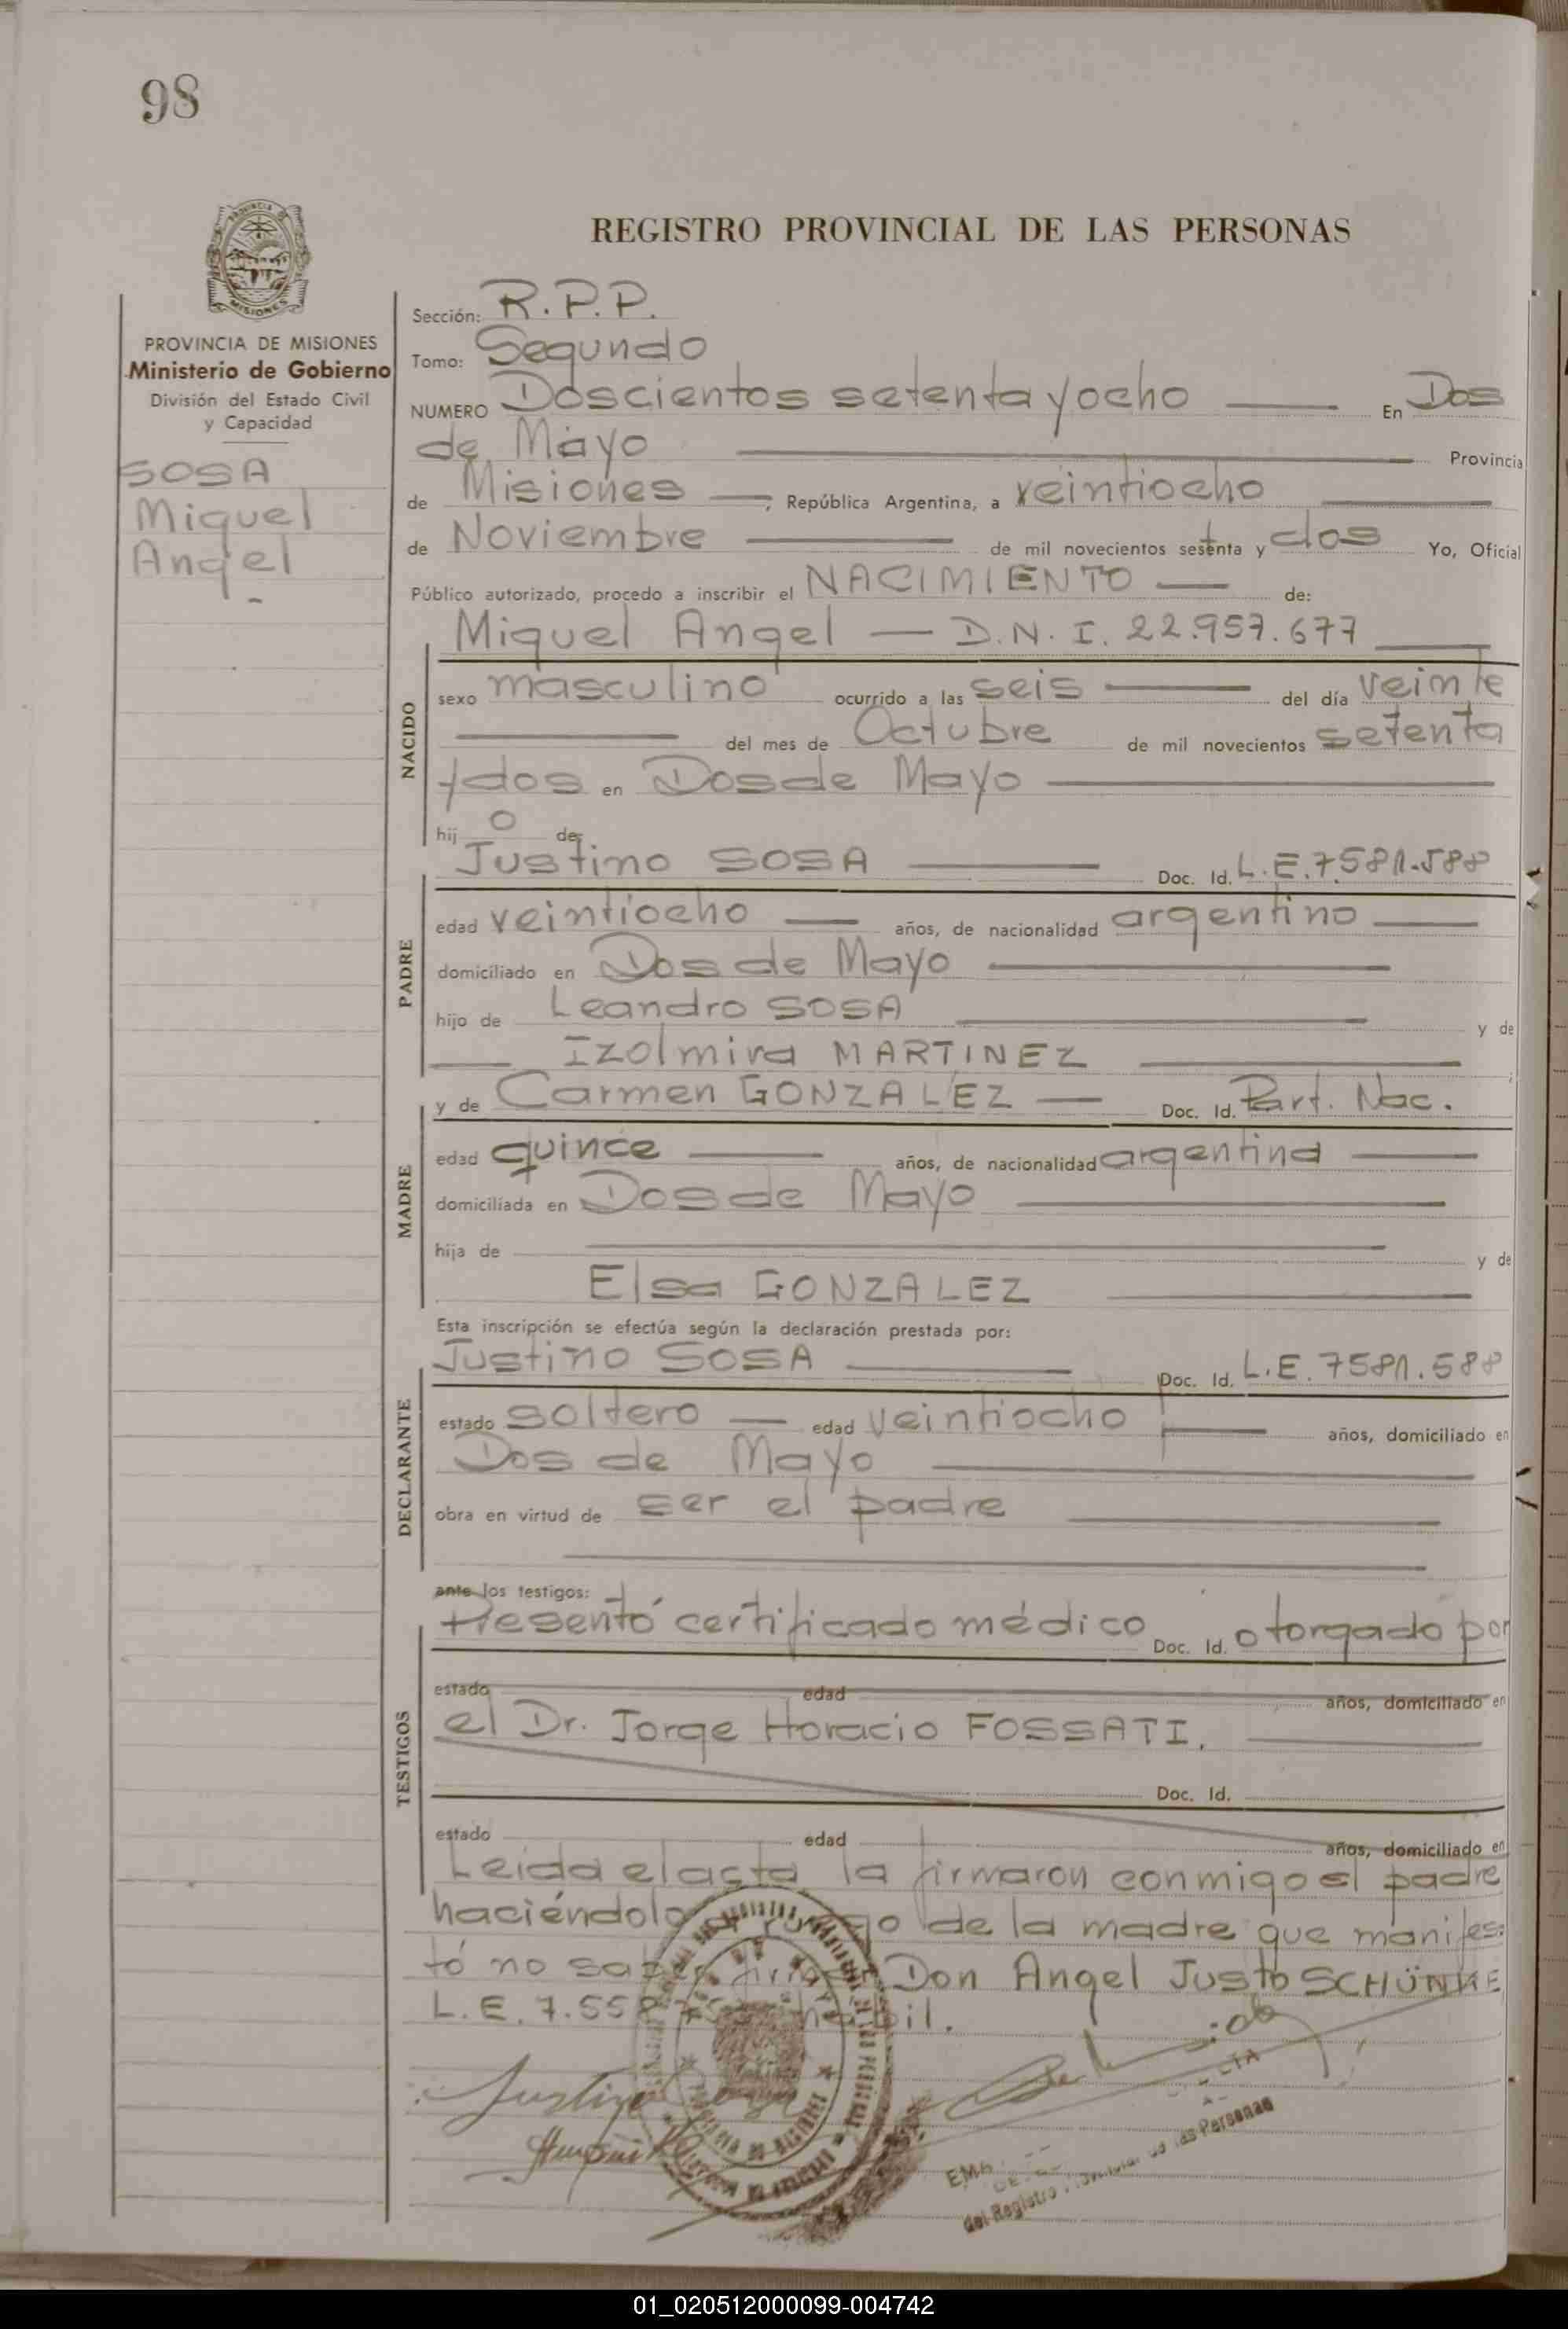 98
REGISTRO PROVINCIAL DE LAS PERSONAS
PROVINCIA DE MISIONES
Ministerio de Gobierno
División del Estado Civil
y Capacidad
SOSA
Miguel
Angel
Sección: R.P.P.
Tomo: Segundo
NUMERO Doscientos setenta y ocho En Dos
de Mayo Provincia
de Misiones, República Argentina, a veintiocho
de Noviembre de mil novecientos setenta y dos Yo, Oficial
Público autorizado, procedo a inscribir el NACIMIENTO de:
NACIDO
Miguel Angel — D.N.I. 22.957.677
sexo masculino ocurrido a las seis del día veinte
del mes de Octubre de mil novecientos setenta
y dos en Dos de Mayo
hij o de
PADRE
Justino SOSA Doc. Id. L.E. 7.581.588
edad veintiocho años, de nacionalidad argentino
domiciliado en Dos de Mayo
hijo de Leandro SOSA y de
Izolmira MARTINEZ
MADRE
y de Carmen GONZALEZ Doc. Id. Part. Nac.
edad quince años, de nacionalidad argentina
domiciliada en Dos de Mayo
hija de y de
Elsa GONZALEZ
Esta inscripción se efectúa según la declaración prestada por:
DECLARANTE
Justino SOSA Doc. Id. L.E. 7581.588
estado soltero edad veintiocho años, domiciliado en
Dos de Mayo
obra en virtud de ser el padre
ante los testigos:
TESTIGOS
Presentó certificado médico Doc. Id. otorgado por
estado edad años, domiciliado en
el Dr. Jorge Horacio FOSSATI.
Doc. Id.
estado edad años, domiciliado en
Leida el acta la firmaron conmigo el padre
haciéndolo a ruego de la madre que manifes
tó no saber firmar Don Angel Justo SCHÜNKE
L.E. 7.558 hábil.
Justino Sosa
del Registro Provincial de las Personas
01_020512000099-004742